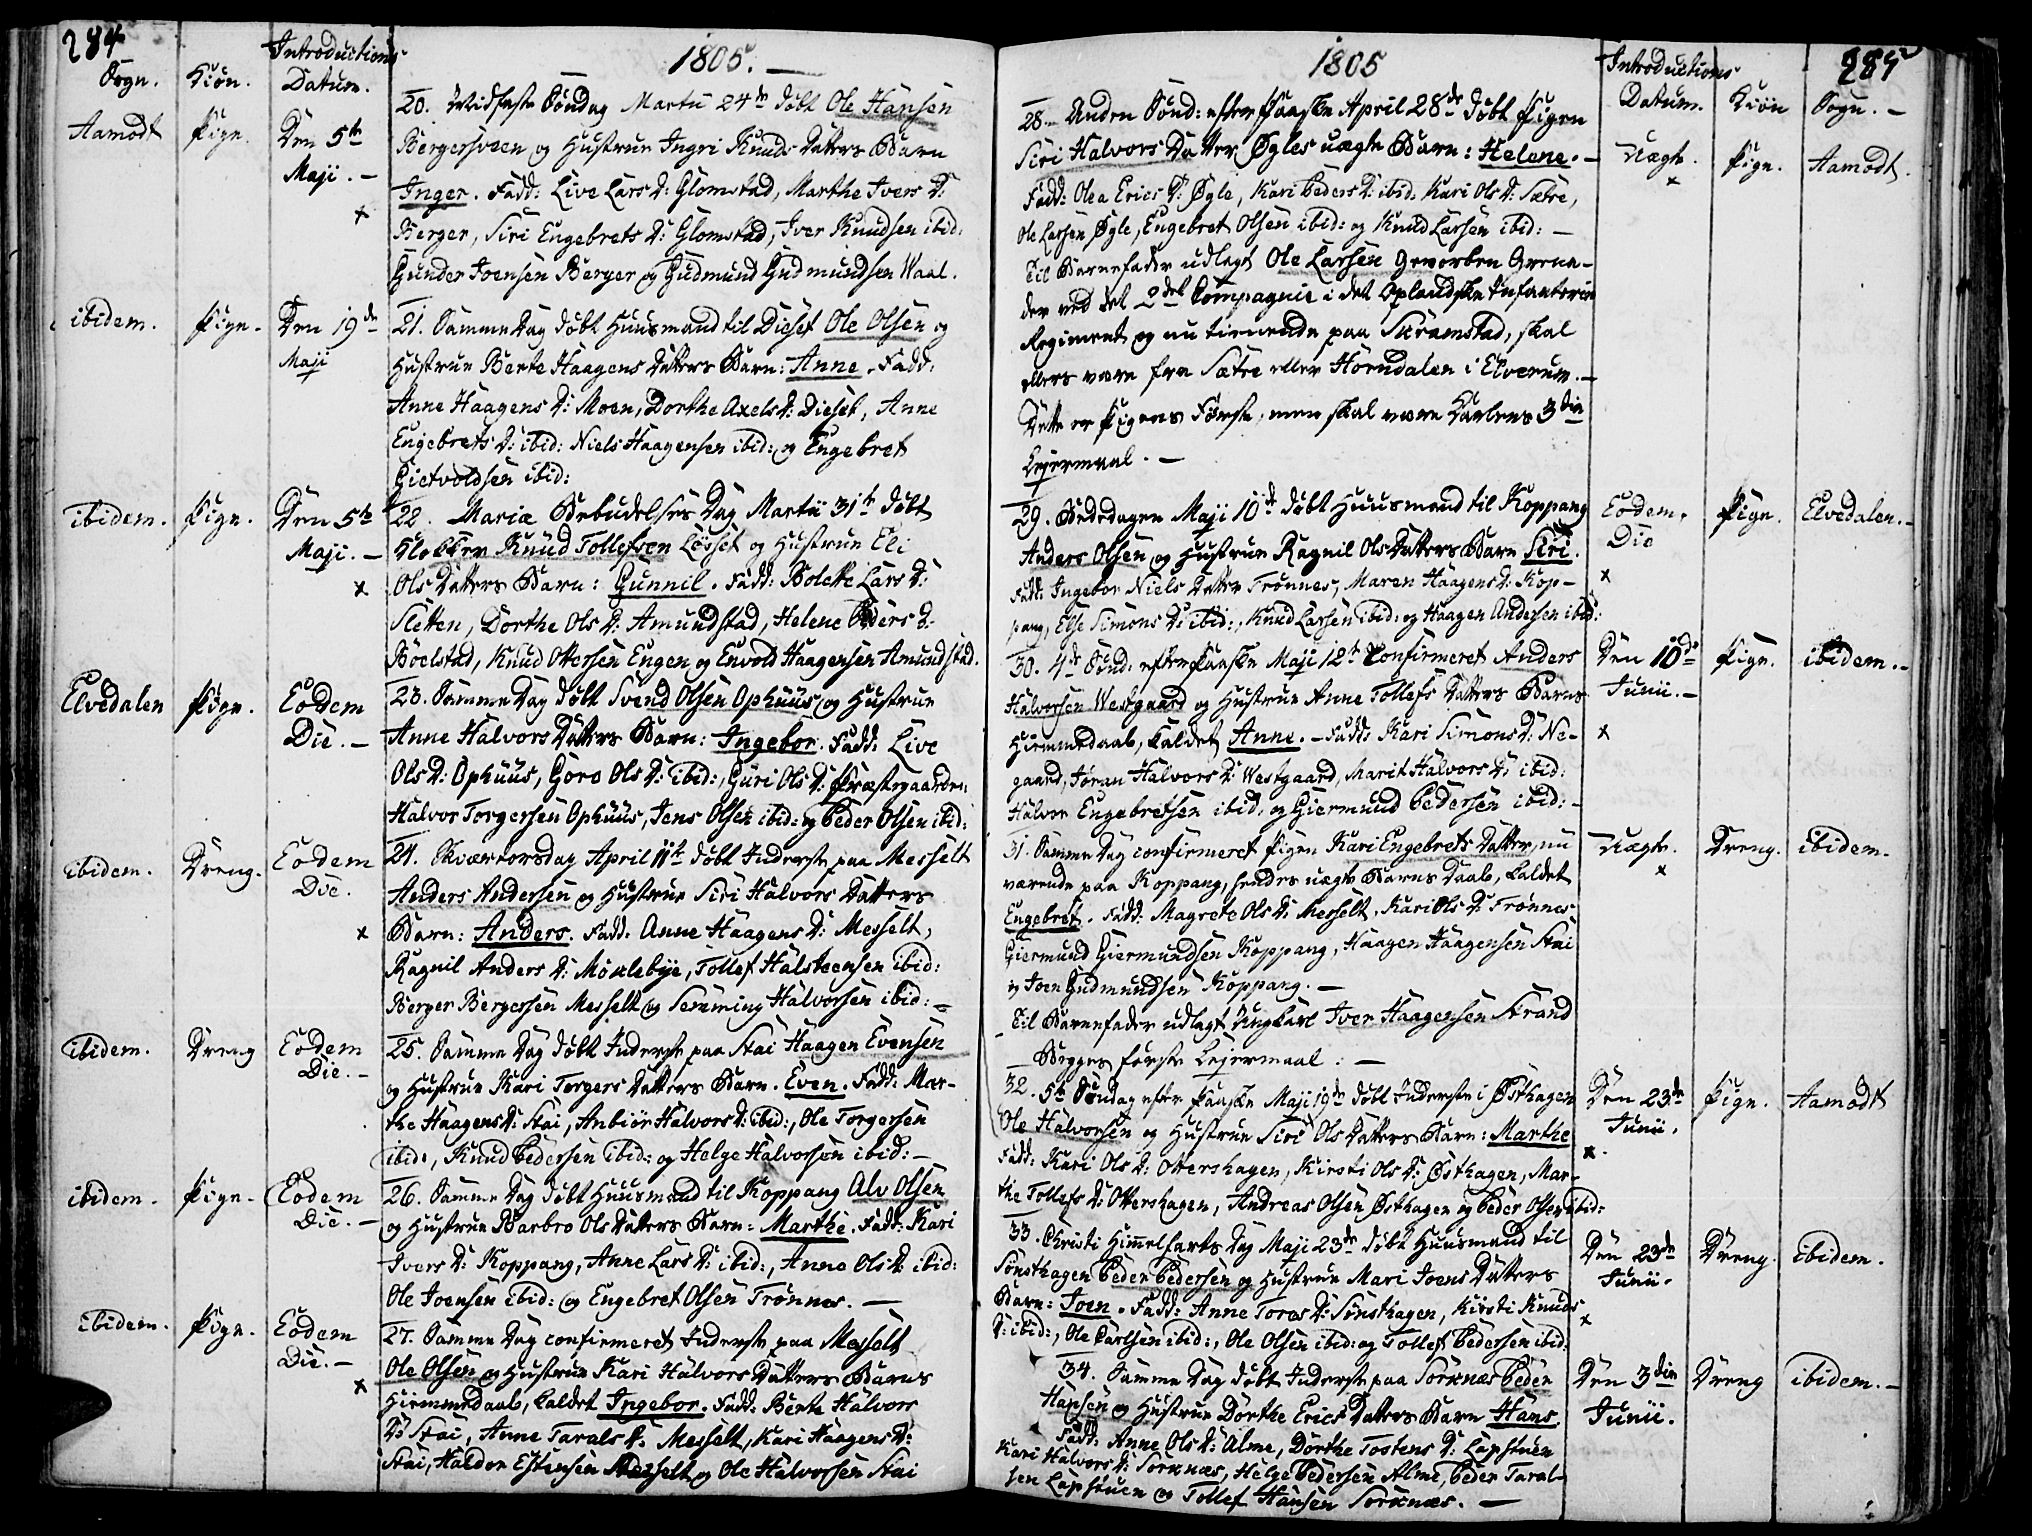 284
Sogn. Kiøn. Introductions Datum.
1805. —
Aamodt Pign. Den 5te Maji. —
20. Midfaste Söndag Martii 24de döbt Ole Hansen
Bergersveen og Hustrue Ingri Knuds Datters Barn
Inger. Fadd: Live Lars D: Glomstad, Marthe Ivers D:
Berger, Siri Engebrets D: Glomstad, Iver Knudsen ibid:
Gunder Joensen Berger og Gudmund Gudmundsen Waal.
ibidem. Pign. Den 19de Maji
21. Samme Dag döbt Huusmand til Dieset Ole Olsen og
Hustrue Berte Haagens Datters Barn: Anne. Fadd:
Anne Haagens D: Moen, Dorthe Axels D: Dieset, Anne
Engebrets D: ibid: Niels Haagensen ibid: og Engebret
Gietvoldsen ibid:
ibidem. Pign. Den 5te Maji. —
22. Mariæ Bebudelses Dag Martii 31te döbt
Klokker Knud Tollefsen Løsset og Hustrue Eli
Ols Datters Barn: Gunnil. Fadd: Bolette Lars D:
Sletten, Dorthe Ols D: Amundstad, Helene Peders D:
Böelstad, Knud Ottersen Engen og Envold Haagensen Amundstad.
Elvedalen Pign. Eodem Die. —
23. Samme Dag döbt Svend Olsen Ophuus og Hustrue
Anne Halvors Datters Barn: Ingebor. Fadd: Live
Ols D: Ophuus, Goro Ols D: ibid:, Guri Ols D: Præstegaarden,
Halvor Torgersen Ophuus, Jens Olsen ibid: og Peder Olsen ibid:
ibidem. Dreng. Eodem Die.
24. Skiærtorsdag April 11te döbt Inderste paa Messelt
Anders Andersen og Hustrue Siri Halvors Datters
Barn: Anders. Fadd: Anne Haagens D: Messelt,
Ragnil Anders D: Möklebye, Tollef Halsteensen ibid:
Berger Bergersen Messelt og Semming Halvorsen ibid: —
ibidem. Dreng Eodem Die. —
25. Samme Dag döbt Inderste paa Stai Haagen Evensen
og Hustrue Kari Torgers Datters Barn. Even. Fadd: Mar-
the Haagens D: Stai, Anbiör Halvors D: ibid:, Ole Torgersen
ibid:, Knud Pedersen ibid: og Helge Halvorsen ibid: —
ibidem. Pign. Eodem Die. —
26. Samme Dag döbt Huusmand til Koppang Alv Olsen
og Hustrue Barbro Ols Datters Barn: Marthe. Fadd: Kari
Ivers D: Koppang, Anne Lars D: ibid:, Anne Ols D: ibid:
Ole Joensen ibid: og Engebret Olsen Trønnes. —
ibidem. Pign. Eodem Die. —
27. Samme Dag confirmeret Inderste paa Messelt
Ole Olsen og Hustrue Kari Halvors Datters Barns
Hiemmedaab, kaldet Ingebor. Fadd: Berte Halvors
D: Stai, Anne Tarals D: Messelt, Kari Haagens D:
Stai, Haldor Estensen Messelt og Ole Halvorsen Stai
1805
Introductions Datum. Kiön Sogn. —
285
28. Anden Sönd: efter Paaske April 28de döbt Pigen
Siri Halvors Datter Øgles uægte Barn: Helene. —
Fadd: Olea Erics D: Øgle, Kari Peders D: ibid: Kari Ols D: Sætre,
Ole Larsen Øgle, Engebret Olsen ibid: og Knud Larsen ibid: —
Til Barnefader udlagt Ole Larsen Gevorben Grena-
der ved det 2det Compagnie i det Oplandske Infanterie
Regiment og nu tienende paa Skramstad, skal
ellers være fra Sætre eller Horndalen i Elverum. —
Dette er Pigens Første, men skal være Karlens 3die
Lejermaal. —
Uægte. Pign. Aamodt.
29. Bededagen Maji 10de döbt Huusmand til Koppang
Anders Olsen og Hustrue Ragnil Ols Datters Barn Siri.
Fadd: Ingebor Niels Datter Trønnes, Maren Haagens D: Kop-
pang, Else Simons D: ibid:, Knud Larsen ibid: og Haagen Andersen ibid:
Eodem Die Pign. Elvedalen. —
30. 4de Sönd: efter Paaske Maji 12te Confirmeret Anders
Halvorsen Westgaard og Hustrue Anne Tollefs Datters Barns
Hiemmedaab, kaldet Anne. — Fadd: Kari Simons D: Ne-
gaard, Jøran Halvors D: Westgaard, Marit Halvors D: ibid:
Halvor Engebretsen ibid. og Giermund Pedersen ibid: —
Den 10de Junii. — Pign. ibidem. —
31. Samme Dag confirmeret Pigen Kari Engebrets Datter, nu
værende paa Koppang, hendes uægte Barns Daab, kaldet
Engebret. Fadd: Magrete Ols D: Messelt, Kari Ols D: Trønnes
Giermund Giermundsen Koppang, Haagen Haagensen Stai
og Joen Gudmundsen Koppang. —
Til Barnefader udlagt Ungkarl Iver Haagensen Strand
Begges første Lejermaal: —
Uægte. Dreng. ibidem.
32. 5te Søndag efter Paaske Maji 19de döbt Inderste i Østhagen
Ole Halvorsen og Hustrue Siri Ols Datters Barn: Marthe
Fadd: Kari Ols D: Ottershagen, Kirsti Ols D: Østhagen, Mar-
the Tollefs D: Ottershagen, Andreas Olsen Østhagen og Peder Olsen ibid:
Den 23de Junii. Pign. Aamodt
33. Christi Himmelfarts Dag Maji 23de döbt Huusmand til
Sønsthagen Peder Pedersen og Hustrue Mari Joens Datters
Barn: Joen. Fadd: Anne Tores D: Sønsthagen, Kirsti Knuds
D: ibid:, Ole Carlsen ibid:, Ole Olsen ibid: og Tollef Pedersen ibid:
Den 23de Junii. Dreng. ibidem.
34. Samme Dag döbt Inderste paa Sorknæs Peder
Hansen og Hustrue Dorthe Erics Datters Barn Hans.
Fadd: Anne Ols D: Alme, Dorthe Tostens D: Lapstuen
Kari Halvors D: Sorknæs, Helge Pedersen Alme, Peder Taral-
sen Lapstuen og Tollef Hansen Sorknæs. —
Den 3die Junii. Dreng ibidem. —